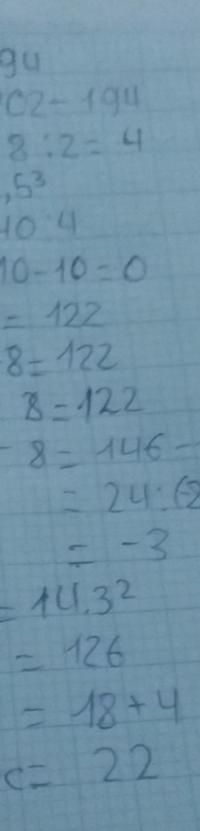 94
02 - 194
8 : 2 = 4
,5³
10 4
10 - 10 = 0
= 122
8 = 122
8 = 122
- 8 = 146 -
= 24 : (-8
= -3
= 14.3²
= 126
= 18 + 4
c = 22